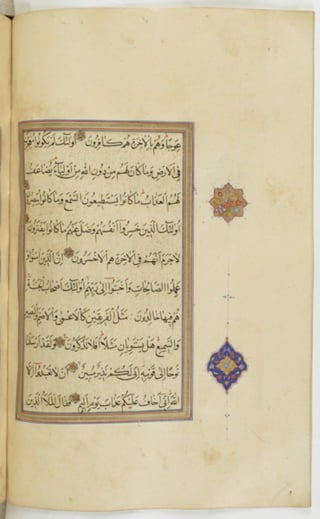 عوجا وهم بالآخرة هم كافرون أولئك لم يكونوا معجزين
في الأرض وما كان لهم من دون الله من أولياء يضاعف
لهم العذاب ما كانوا يستطيعون السمع وما كانوا يبصرون
أولئك الذين خسروا أنفسهم وضل عنهم ما كانوا يفترون
لا جرم أنهم في الآخرة هم الأخسرون إن الذين آمنوا و
عملوا الصالحات وأخبتوا إلى ربهم أولئك أصحاب الجنة
هم فيها خالدون مثل الفريقين كالأعمى والأصم والبصير
والسميع هل يستويان مثلا أفلا تذكرون ولقد أرسلنا
نوحا إلى قومه إني لكم نذير مبين أن لا تعبدوا إلا
الله إني أخاف عليكم عذاب يوم أليم فقال الملأ الذين